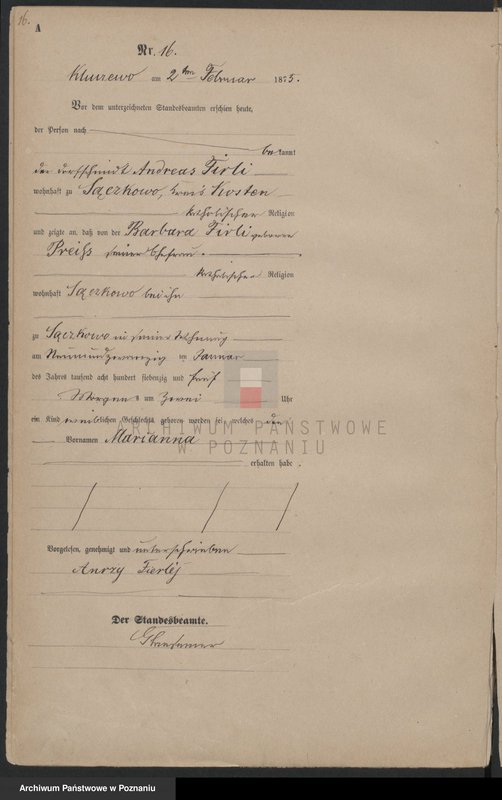 16.
A
Nr. 16.
Kluczewo am 2ten Februar 1875.
Vor dem unterzeichneten Standesbeamten erschien heute,
der Person nach
bekannt
der Andreas Firli
wohnhaft zu Sączkowo, Kreis Kosten
katholischer Religion
und zeigte an, daß von der Barbara Firli geborene
Preihs seiner Ehefrau
katholischer Religion
wohnhaft Sączkowo bei ihm
zu Sączkowo in seiner Wohnung
am Neunundzwanzig ten Januar
des Jahres tausend acht hundert siebenzig und fünf
Morgens um Zwei Uhr
ein Kind weiblichen Geschlechts geboren worden sei, welches den
Vornamen Marianna
erhalten habe.
ARCHIWUM PAŃSTWOWE
W POZNANIU
Vorgelesen, genehmigt und unterschrieben
Anrzy Fierlej
Der Standesbeamte.
Archiwum Państwowe w Poznaniu